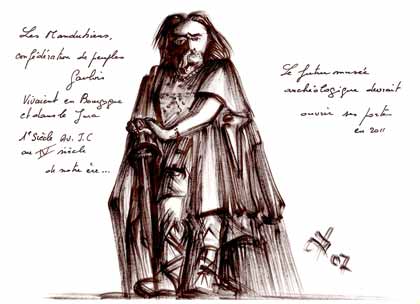 Les Mandubiens,
confédération de peuples
Gaulois
Vivaient en Bourgogne
et dans le Jura
1er Siècle av. J.C
au IV siècle
de notre ère...
Le futur musée
archéologique devrait
ouvrir ses portes
en 2011
07